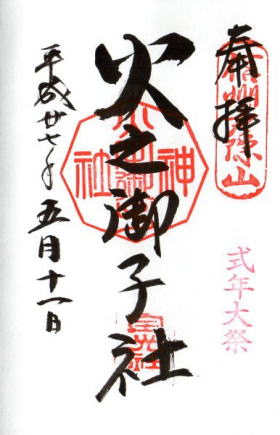 奉拝
信州戸隠山
式年大祭
火之御子社
火之御子社
神社
宝光社
平成廿七年五月十一日